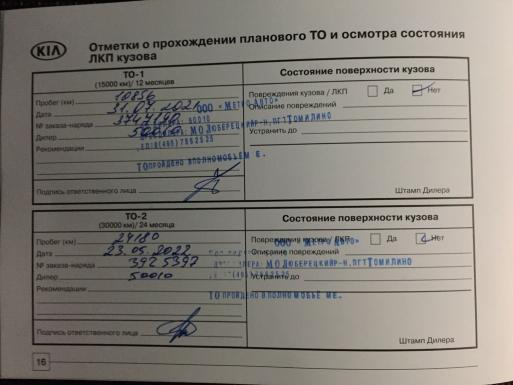 KIA
Отметки о прохождении планового ТО и осмотра состояния
ЛКП кузова
ТО-1
(15000 км)/ 12 месяцев
Состояние поверхности кузова
Пробег (км) 10856
Повреждения кузова / ЛКП Да Нет
Дата 31.07.2021
ООО «Метро Авто»
Описание повреждений
№ заказа-наряда 3747190
Дилер 50010
МО Люберецкий р-н, пгт Томилино
Устранить до
Рекомендации
ТО пройдено в полном объем е.
Подпись ответственного лица
Штамп Дилера
ТО-2
(30000 км)/ 24 месяца
Состояние поверхности кузова
Пробег (км) 24180
Повреждения кузова / ЛКП Да Нет
ООО «Метро Авто»
Дата 23.05.2022
Описание повреждений
№ заказа-наряда 3925397
МО Люберецкий р-н, пгт Томилино
Дилер 50010
Устранить до
Рекомендации
ТО пройдено в полном объе ме.
Подпись ответственного лица
Штамп Дилера
16